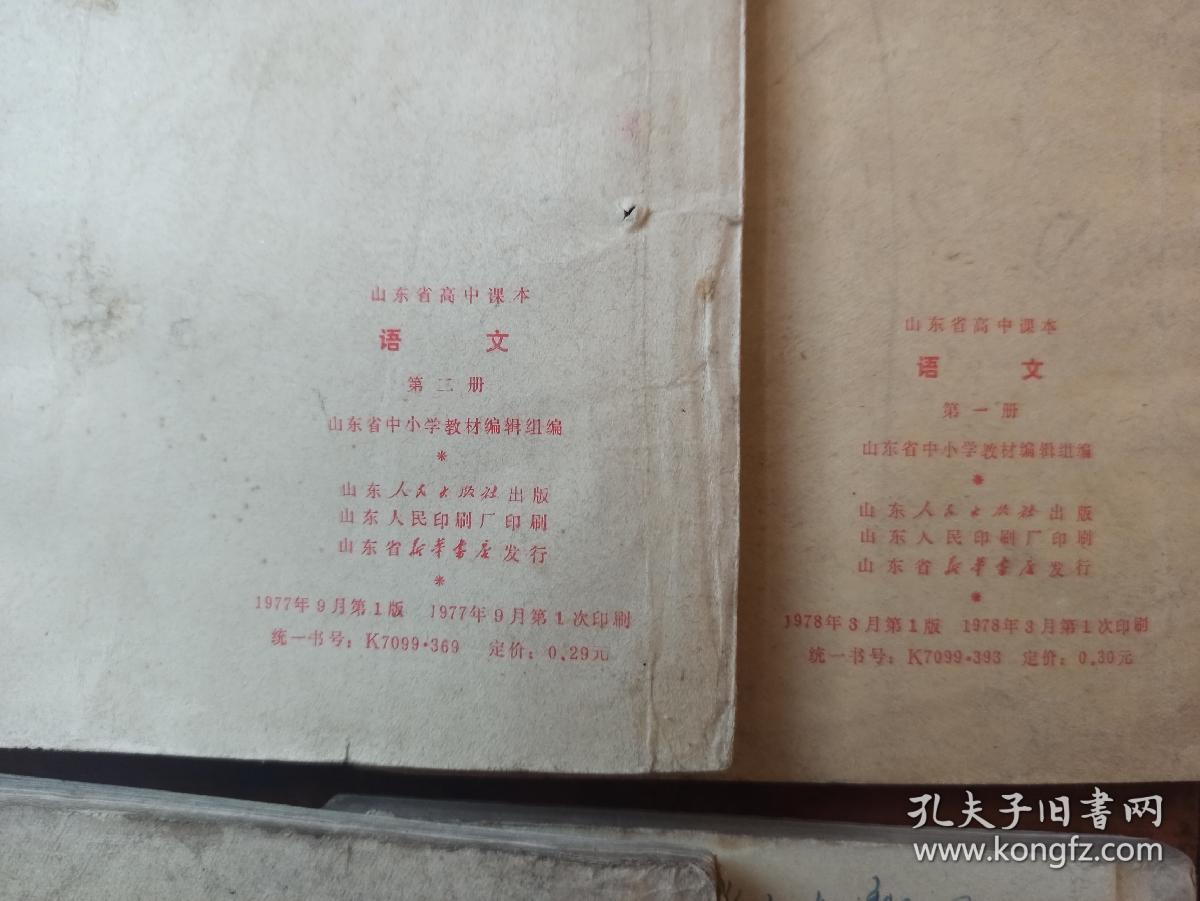 山东省高中课本
语 文
第二册
山东省中小学教材编辑组编
*
山东人民出版社出版
山东人民印刷厂印刷
山东省新华书店发行
*
1977年9月第1版 1977年9月第1次印刷
统一书号：K7099·369 定价：0.29元
山东省高中课本
语 文
第一册
山东省中小学教材编辑组编
*
山东人民出版社出版
山东人民印刷厂印刷
山东省新华书店发行
*
1978年3月第1版 1978年3月第1次印刷
统一书号：K7099·393 定价：0.30元
孔夫子旧书网
www.kongfz.com